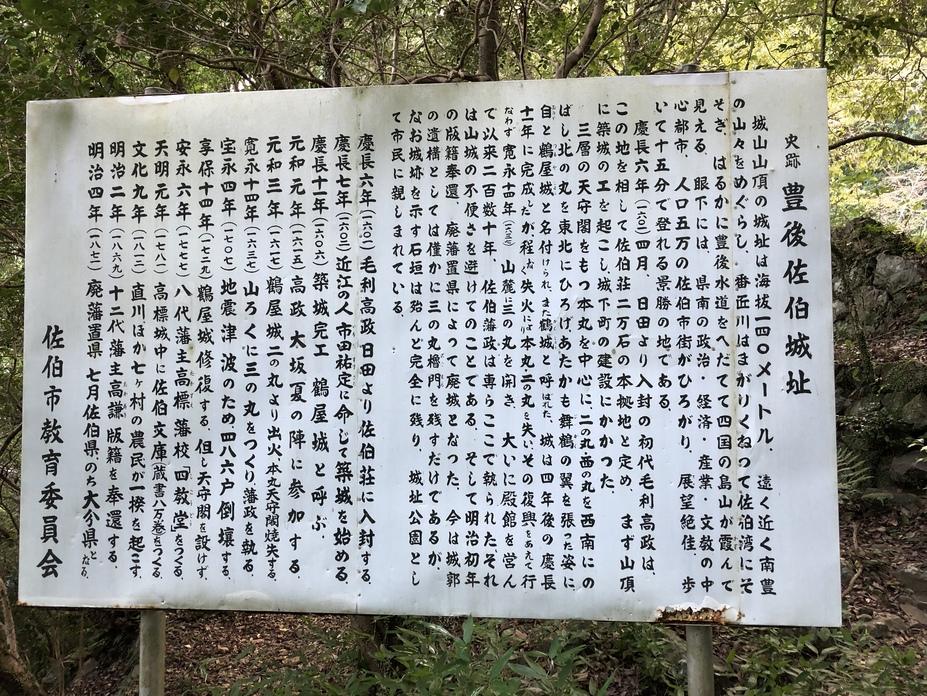 史跡 豊後佐伯城址
城山山頂の城址は海抜一四〇メートル、遠く近く南豊
の山々をめぐらし、番匠川はまがりくねって佐伯湾にそ
そぎ、はるかに豊後水道をへだてて四国の島山が霞んで
見える。眼下には、県南の政治・経済・産業・文教の中
心都市、人口五万の佐伯市街がひろがり、展望絶佳、歩
いて十五分で登れる景勝の地である。
慶長六年(一六〇一)四月、日田より入封の初代毛利高政は、
この地を相して佐伯荘二万石の本拠地と定め、まず山頂
に築城の工を起こし、城下町の建設にかかった。
三層の天守閣をもつ本丸を中心に、二の丸・西の丸を西南にの
ばし北の丸を東北にひろげ、あたかも舞鶴の翼を張った姿に
自と鶴屋城と名付けられ、また鶴城と呼ばれた。城は四年後の慶長
十一年に完成したが程なく失火により本丸二の丸を失いその復興をあえて行
なわず 寛永十四年(一六三七)、山麓に三の丸を開き、大いに殿館を営ん
で以来二百数十年、佐伯藩政は専らここで執られた。それ
は山城の不便さを避けてのことである。そして明治初年
の版籍奉還、廃藩置県によって廃城となった。今は城郭
の遺構としては僅かに三の丸櫓門を残すだけであるが、
なお城跡を示す石垣は殆んど完全に残り、城址公園とし
て市民に親しまれている。
慶長六年(一六〇一)毛利高政日田より佐伯荘に入封する。
慶長七年(一六〇二)近江の人市田祐定に命じて築城を始める。
慶長十一年(一六〇六)築城完工 鶴屋城と呼ぶ。
元和元年(一六一五)高政 大坂夏の陣に参加する。
元和三年(一六一七)鶴屋城二の丸より出火本丸天守閣焼失する。
寛永十四年(一六三七)山ろくに三の丸をつくり藩政を執る。
宝永四年(一七〇七)地震津波のため四八六戸倒壊する。
享保十四年(一七二九)鶴屋城修復する。但し天守閣を設けず。
安永六年(一七七七)八代藩主高標藩校「四教堂」をつくる。
天明元年(一七八一)高標城中に佐伯文庫(蔵書八万巻)をつくる。
文化九年(一八一二)直川ほか七ヶ村の農民が一揆を起こす。
明治二年(一八六九)十二代藩主高謙版籍を奉還する。
明治四年(一八七一)廃藩置県 七月佐伯県のち大分県となる。
佐伯市教育委員会